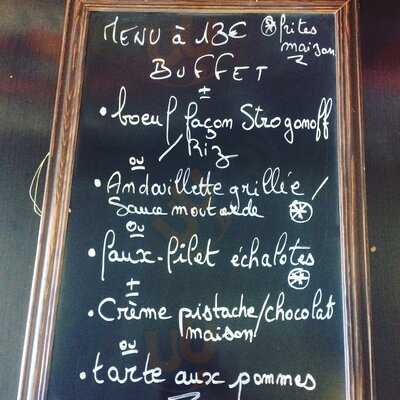 MENU à 13€
frites
maison
BUFFET
±
• boeuf façon Stroganoff
/ Riz
ou
• Andouillette grillée /
Sauce moutarde
ou
• faux-filet échalotes
±
• Crème pistache/chocolat
maison
ou
• tarte aux pommes